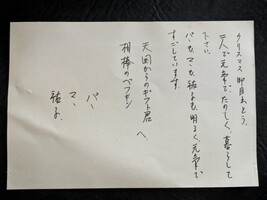 クリスマス、御目出とう、
二人で元気で、たのしく、暮らして
下さい。
パパも、ママも、祐子も、明るく、元気で
すごしています。
天国からのギフト君
相棒のペプキン へ、
パパ
ママ
祐子、